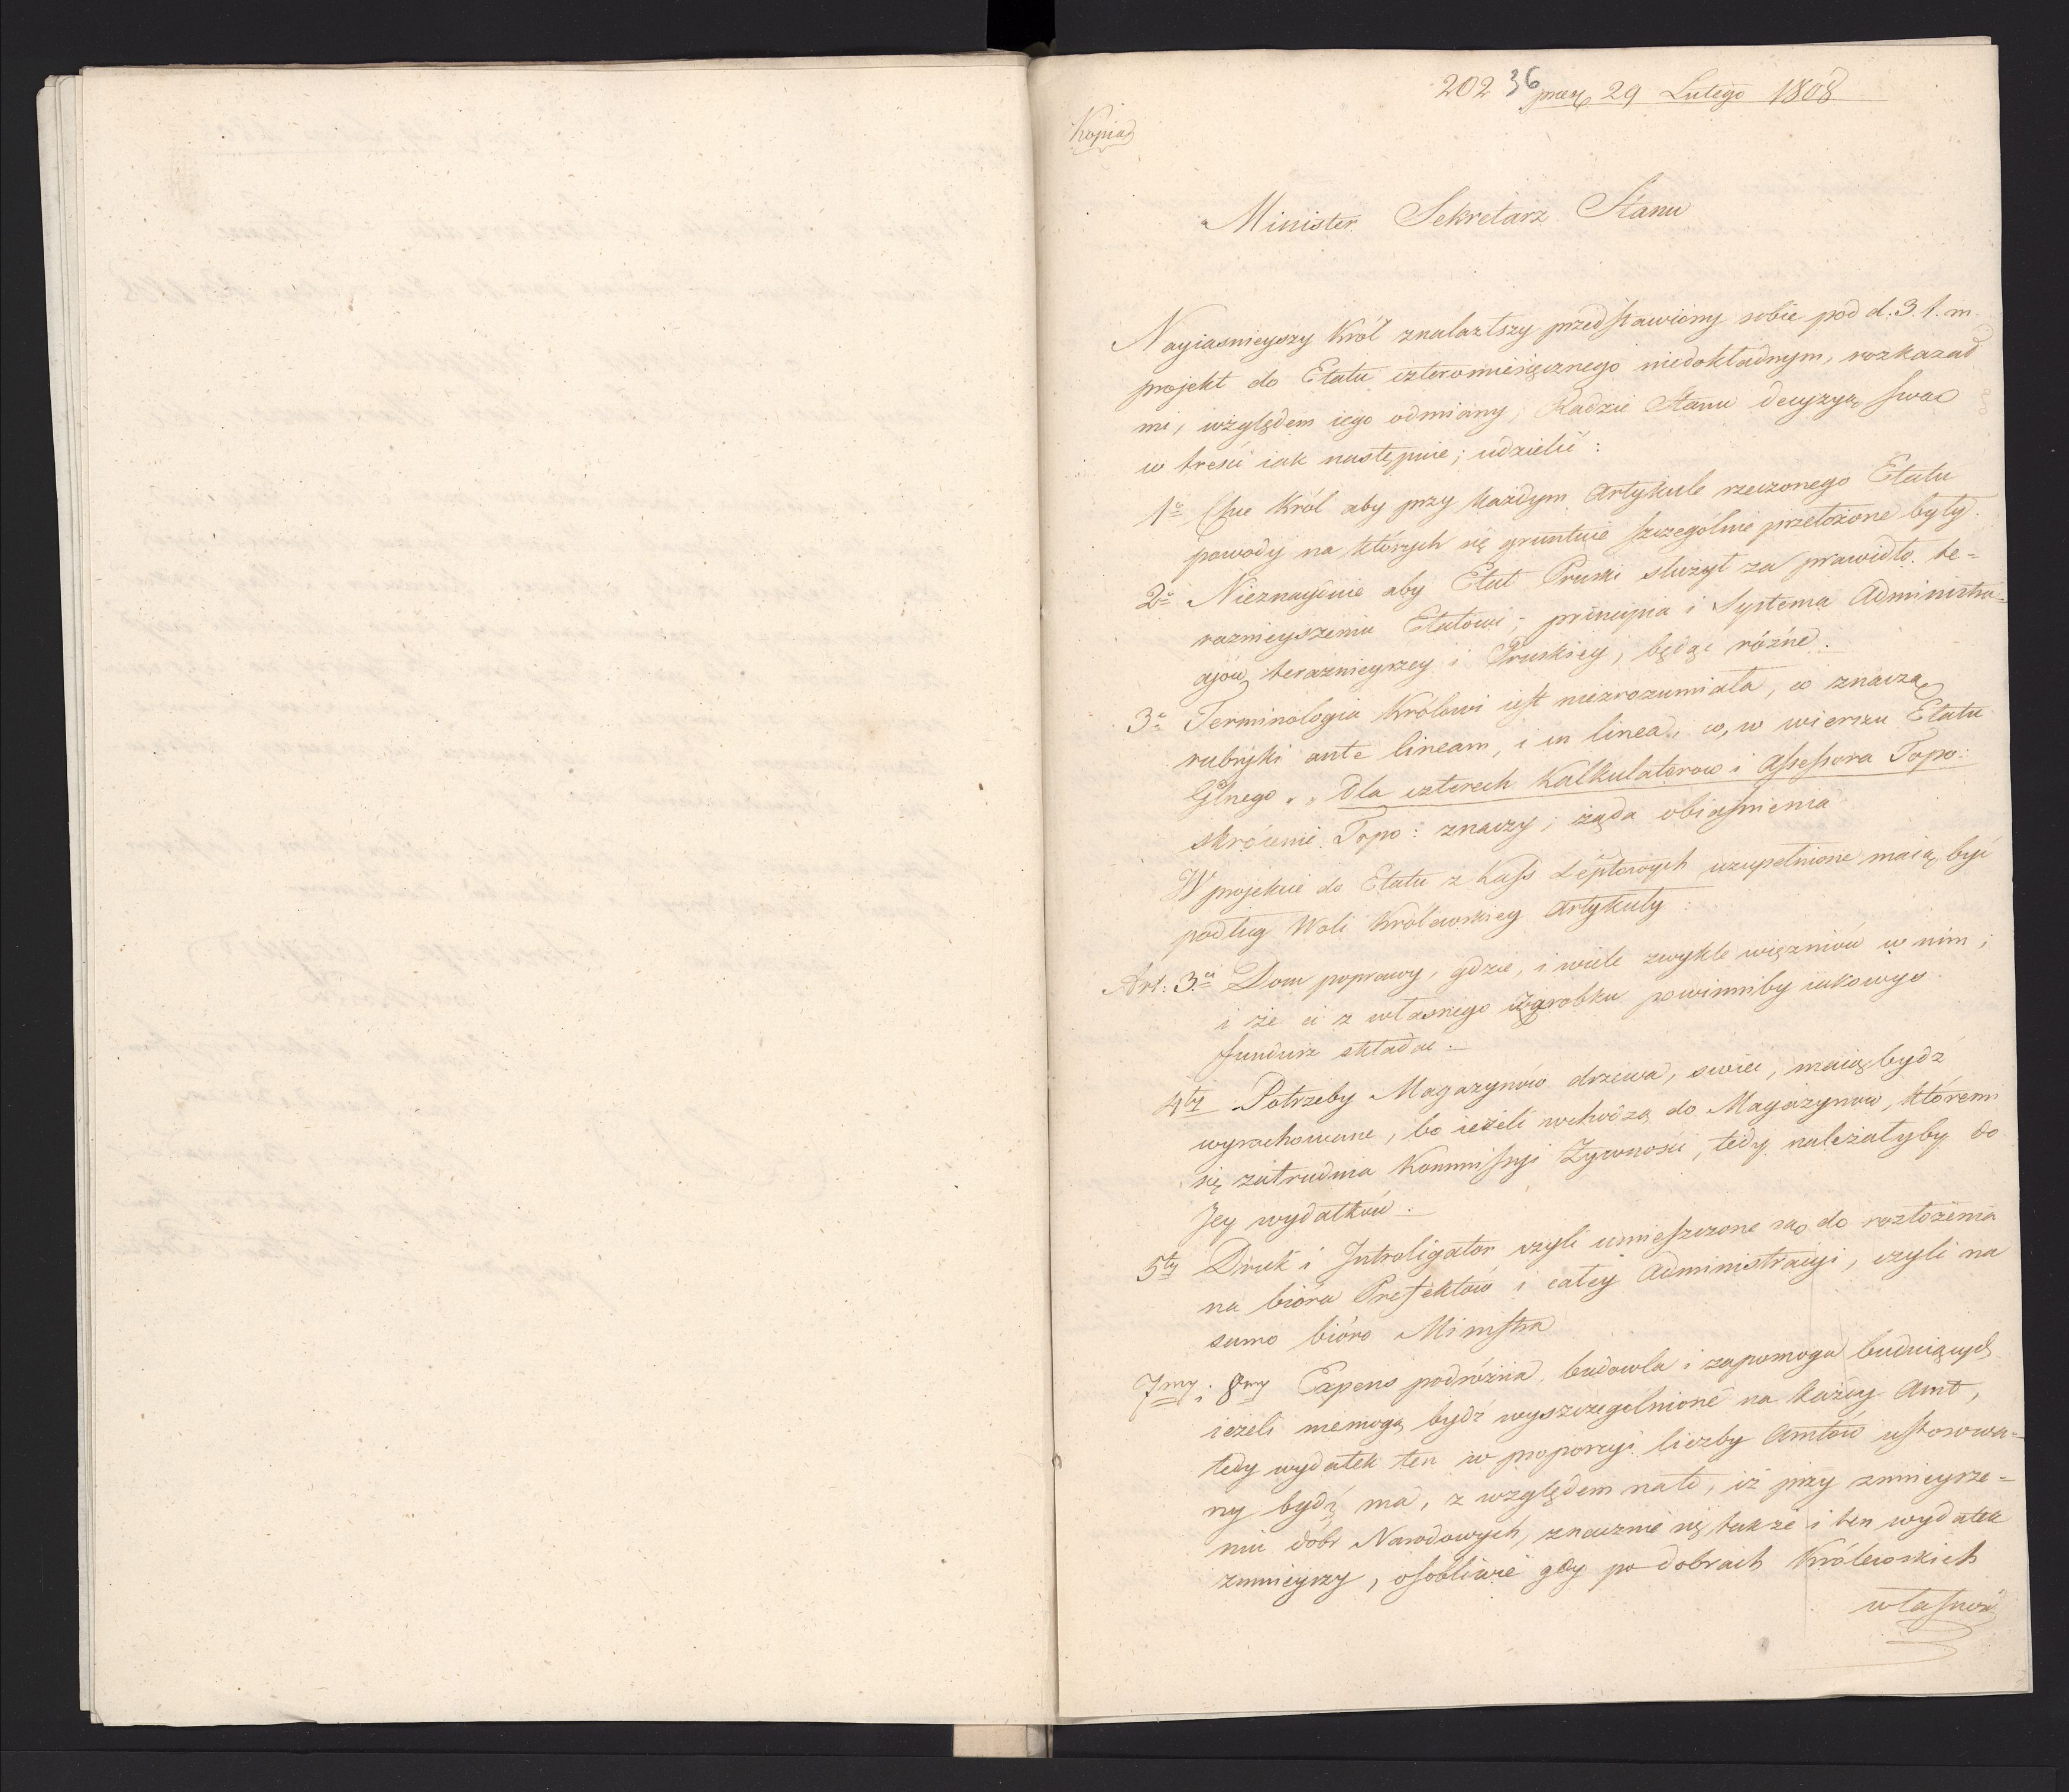 202 36 præs 29 Lutego 1808
Kopia
Minister Sekretarz Stanu
Nayiasnieyszy Król znalazłszy przedstawiony sobie pod d. 3. t. m.
projekt do Etatu czteromiesięcznego niedokładnym, rozkazał
mi, względem iego odmiany, Radzie Stanu decyzyą swą
w treści iak następuie; udzielić:
1o Chce Król aby przy każdym Artykule rzeczonego Etatu
powody na których się gruntuie szczególnie przełożone były.
2o Nieznayduie aby Etat Pruski służył za prawidło te=
razmieyszemu Etatowi; principia i Systema Administra=
cyów terazmieyszey i Pruskiey, będąc różne.
3o Terminologia Królowi iest niezrozumiała, co znaczą
rubryki ante lineam, i in linea, co, w wierszu Etatu
Glnego „ „ Dla czterech Kalkulatorow i Assessora Topo:
skrócenie Topo: znaczy; żąda obiaśnienia
W projekcie do Etatu z Kass Deptowych uzupełnione maią być
podług Woli Królewskiey Artykuły:
Art: 3ci Dom poprawy, gdzie, i wiele zwykle więzniów w nim;
i że ci z własnego zarobku powinniby iakowyś
fundusz składać.
4ty Potrzeby Magazynów drzewa, swiec, maią bydź
wyrachowane, bo ieżeli wchodzą do Magazynow, któremi
się zatrudnia Kommissyi Żywnosci, tedy należałyby do
Jey wydatków.
5ty Druk i Introligator czyli umieszczone są do rozłożenia
na bióra Prefektów i całey Administracyi, czyli na
samo bióro Ministra
7my i 8my Expens podróżna, budowla i zapomoga buduiących
ieżeli niemogą bydź wyszczegolnione na każdy Amt,
tedy wydatek ten w proporcyi liczby Amtów ustosowa=
ny bydź ma, z względem na to, iż przy zmnieysze=
niu dóbr Narodowych, znacznie się także i ten wydatek
zmnieyszy, osobliwie gdy po dobrach Królewskich
własność